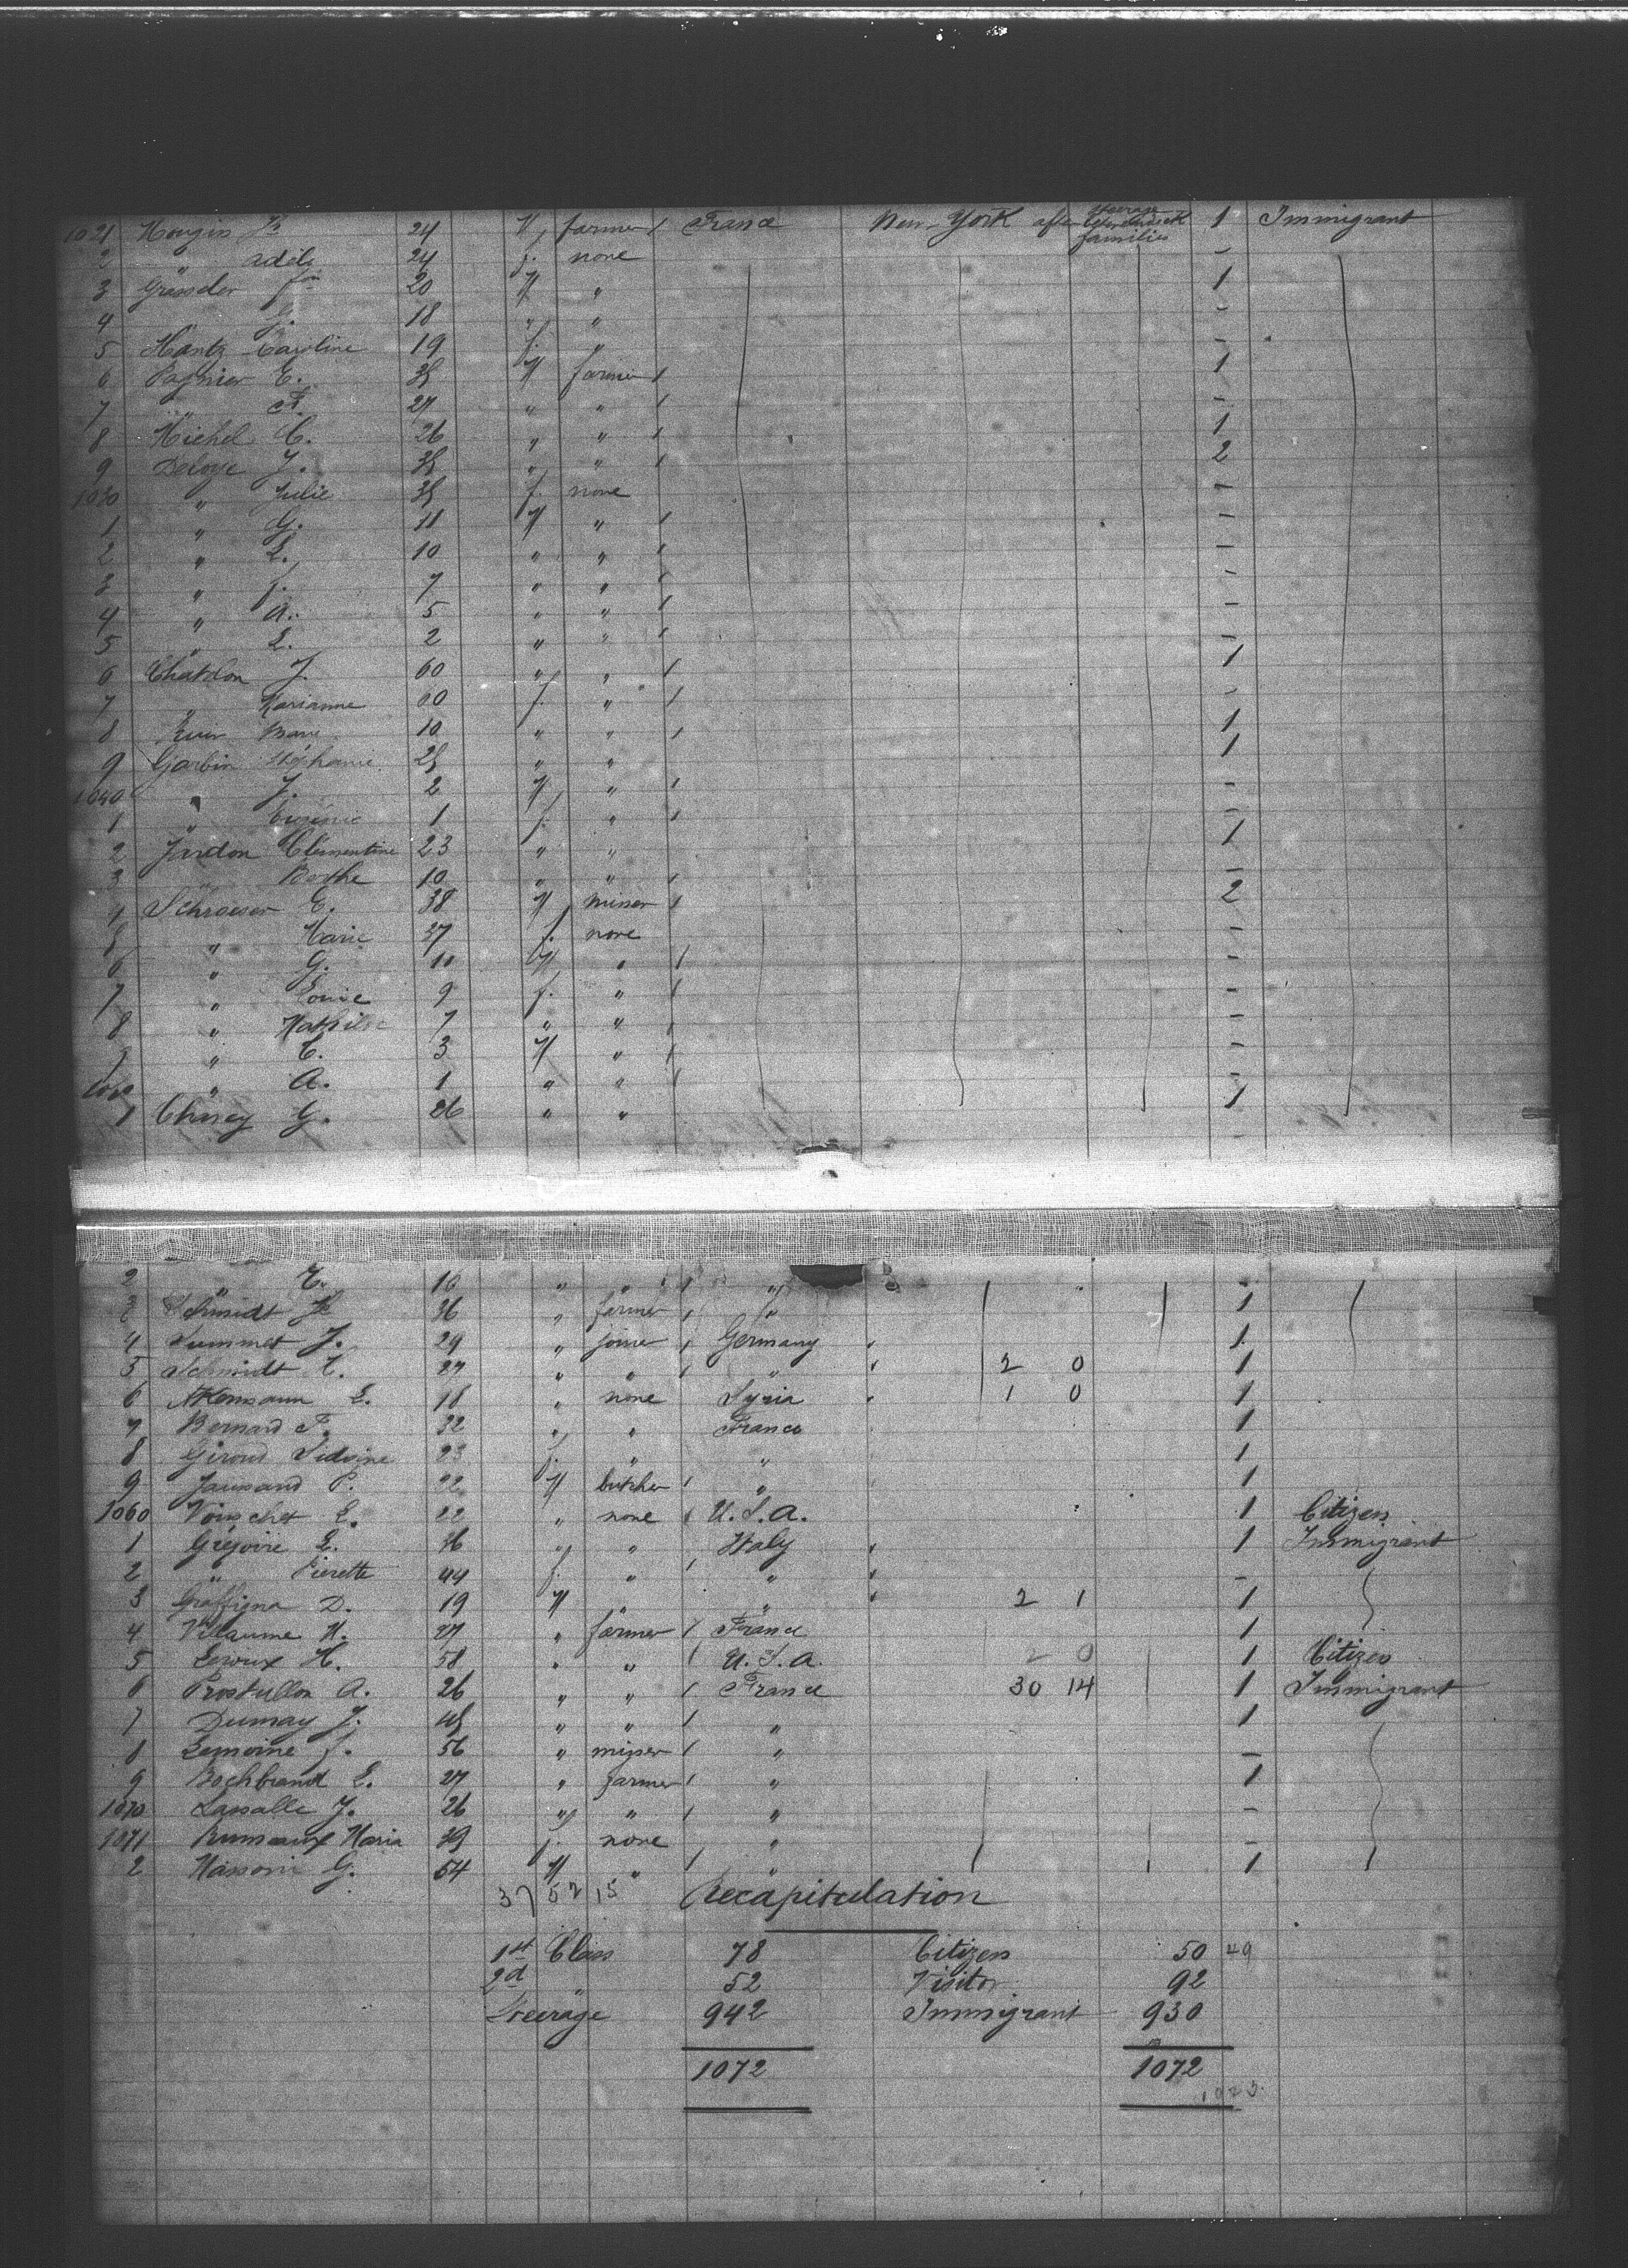 1021 24 M farmer 1 France New-York after Steerage families 1 Immigrant
2 " adèle 24 f. none -
3 20 M " 1
4 G. 18 " " -
5 Hantz Caroline 19 f. " -
6 Pagnier E. 35 M farmer 1 1
7 " F. 27 " " 1 -
8 Michel C. 26 " " 1 1
9 Deloye J. 35 " " 1 2
1030 " Julie 35 f. none -
1 " G. 11 M " 1 -
2 " E. 10 " " 1 -
3 " J. 7 " " 1 -
4 " A. 5 " " 1 -
5 " E. 2 " " 1 -
6 J. 60 " " 1 1
7 " Marianne 60 f. " 1 -
8 Marie 10 " " 1 1
9 Garbin Stéphanie 25 " " 1
1040 " J. 2 M " 1 -
1 " Eugénie 1 f. " 1 -
2 Jardon Clementine 23 " " 1
3 " Berthe 10 " " 1 -
4 E. 38 M miner 1 2
5 " Marie 37 f. none -
6 " G. 10 M " 1 -
7 " Louise 9 f. " 1 -
8 " Mathilde 7 " " 1 -
9 " C. 3 M " 1 -
" A. 1 " " 1 -
1 G. 26 " " 1
2 " 10 " " 1 " -
3 Schmidt 36 " farmer 1 " 1
4 Lummet J. 29 " joiner 1 Germany 1
5 Schmidt 27 " " 1 " 2 0 1
6 E. 18 " none Syria 1 0 1
7 Bernard F. 32 " " France 1
8 Giroud 23 f. " " 1
9 Jaussaud P. 22 M butcher 1 " 1
1060 E. 22 " none 1 U.S.A. 1 Citizen
1 Grégoire E. 36 " " Italy 1 Immigrant
2 " Pierette 44 f. " " -
3 Graffigna D. 19 M " 2 1 1
4 Villaume H. 27 " farmer 1 France 1
5 Leroux H. 58 " " 1 U.S.A. 2 0 1 Citizen
6 A. 26 " " 1 France 30 14 1 Immigrant
7 Dumay J. 45 " " 1 " 1
8 Lemoine J. 56 " miner 1 " -
9 Bochbrand E. 27 " farmer 1 " 1
1070 Lassalle J. 26 " " 1 " -
1071 Maria 39 f. none " -
2 Massoni G. 54 M " 1 " 1
37 52 15 Recapitulation
1st Class 78 Citizen 50 49
2d " 52 Visitor 92
Steerage 942 Immigrant 930
1072 1072